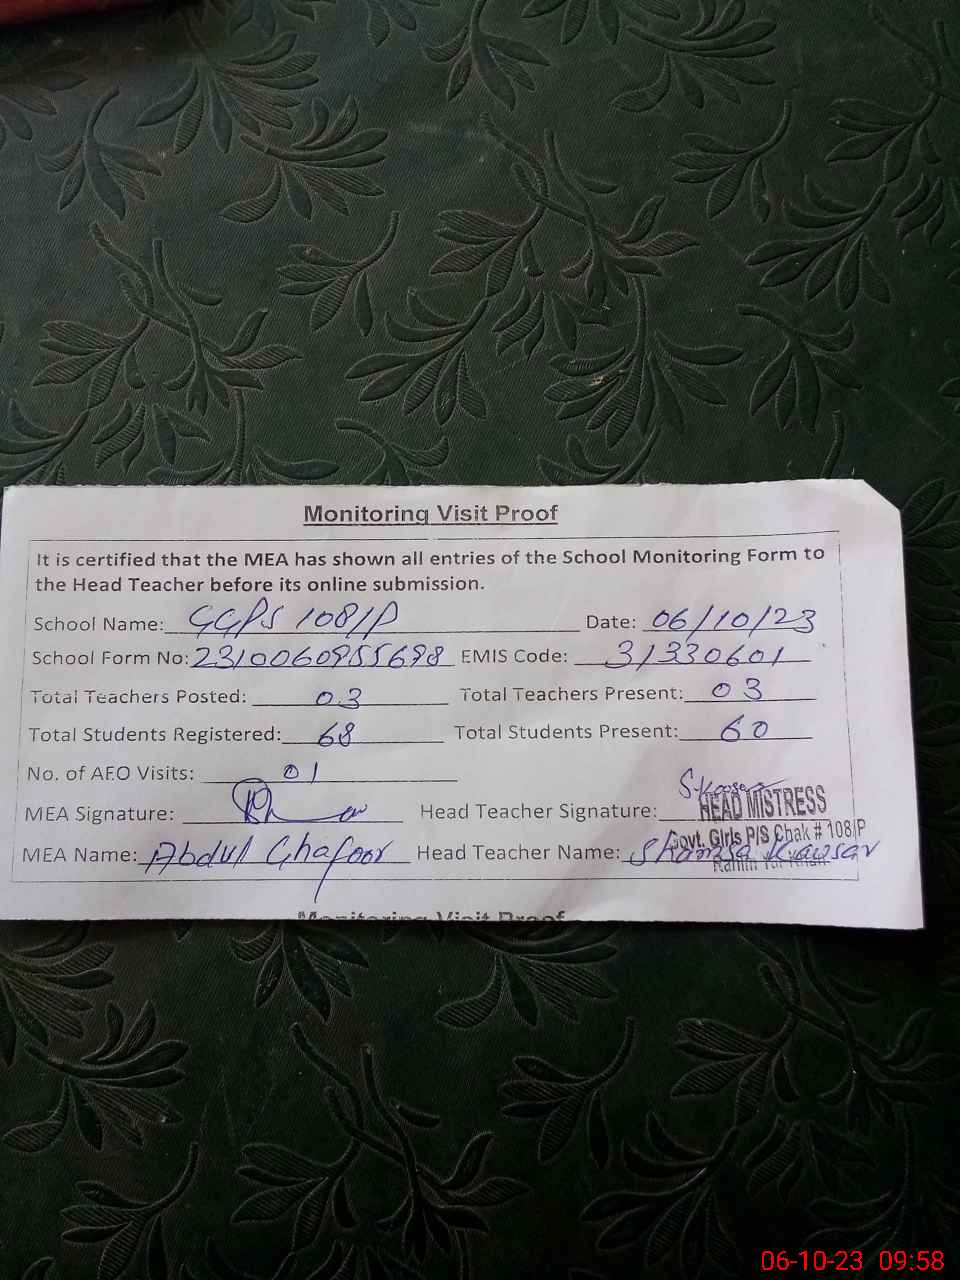 Monitoring Visit Proof
It is certified that the MEA has shown all entries of the School Monitoring Form to
the Head Teacher before its online submission.
School Name: GGPS 108/P Date: 06/10/23
School Form No: 2310060955698 EMIS Code: 31330601
Total Teachers Posted: 03 Total Teachers Present: 03
Total Students Registered: 68 Total Students Present: 60
No. of AEO Visits: 01
MEA Signature: Head Teacher Signature: S.Koser
HEAD MISTRESS
Govt. Girls P/S Chak # 108/P
MEA Name: Abdul Ghafoor Head Teacher Name: Shamsa Kausar
Rahim Yar Khan
Monitoring Visit Proof
06-10-23 09:58